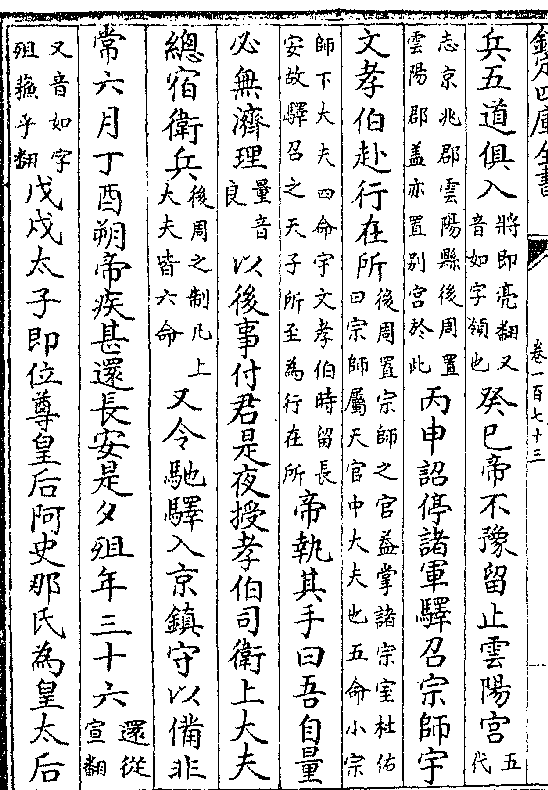 欽定四庫全書
卷一百七十三
兵五道俱入將即亮翻又音如字領也癸巳帝不豫留止雲陽宮五代
志京兆郡雲陽縣後周置雲陽郡盖亦置别宮於此丙申詔停諸軍驛召宗師宇
文孝伯赴行在所後周置宗師之官益掌諸宗室杜佑曰宗師屬天官中大夫也五命小宗
師下大夫四命宇文孝伯時留長安故驛召之天子所至為行在所帝執其手曰吾自量
必無濟理量音良以後事付君是夜授孝伯司衛上大夫
總宿衛兵後周之制凡上大夫皆六命又令馳驛入京鎮守以備非
常六月丁酉朔帝疾甚還長安是夕殂年三十六還從宣翻
又音如字殂乎翻戊戌太子即位尊皇后阿史那氏為皇太后